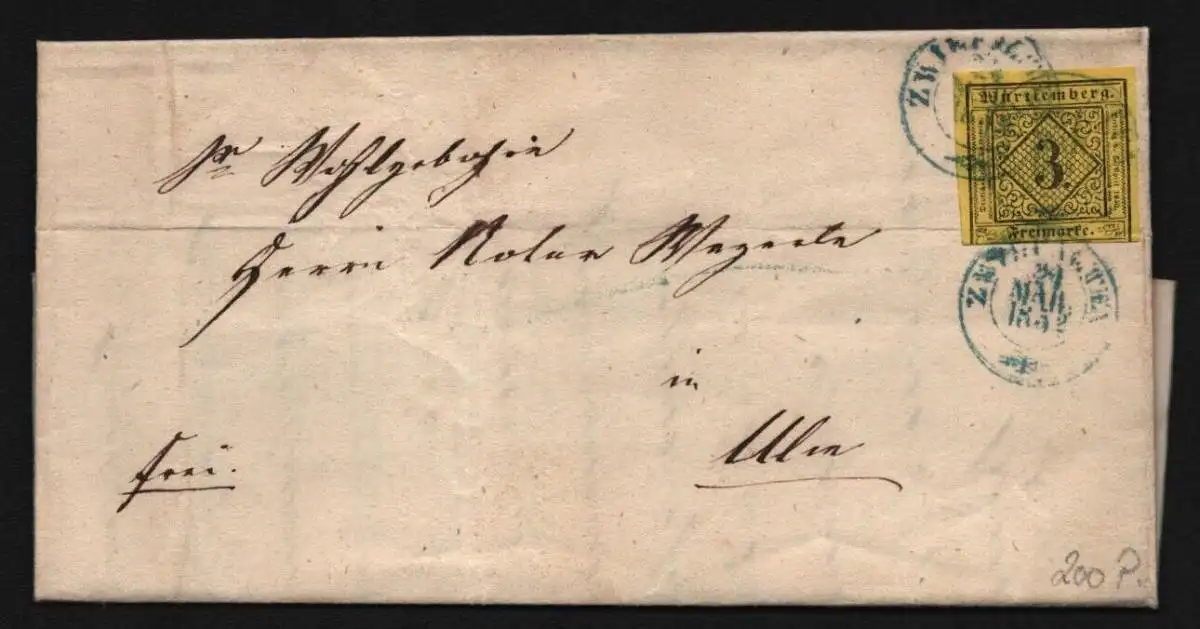 ZWIEFALTEN
Württemberg.
3
Freimarke.
ZWIEFALTEN
MAI
1852
Sr Wohlgeboren
Herrn Notar Wezerle
in
Ulm
frei.
200 P.